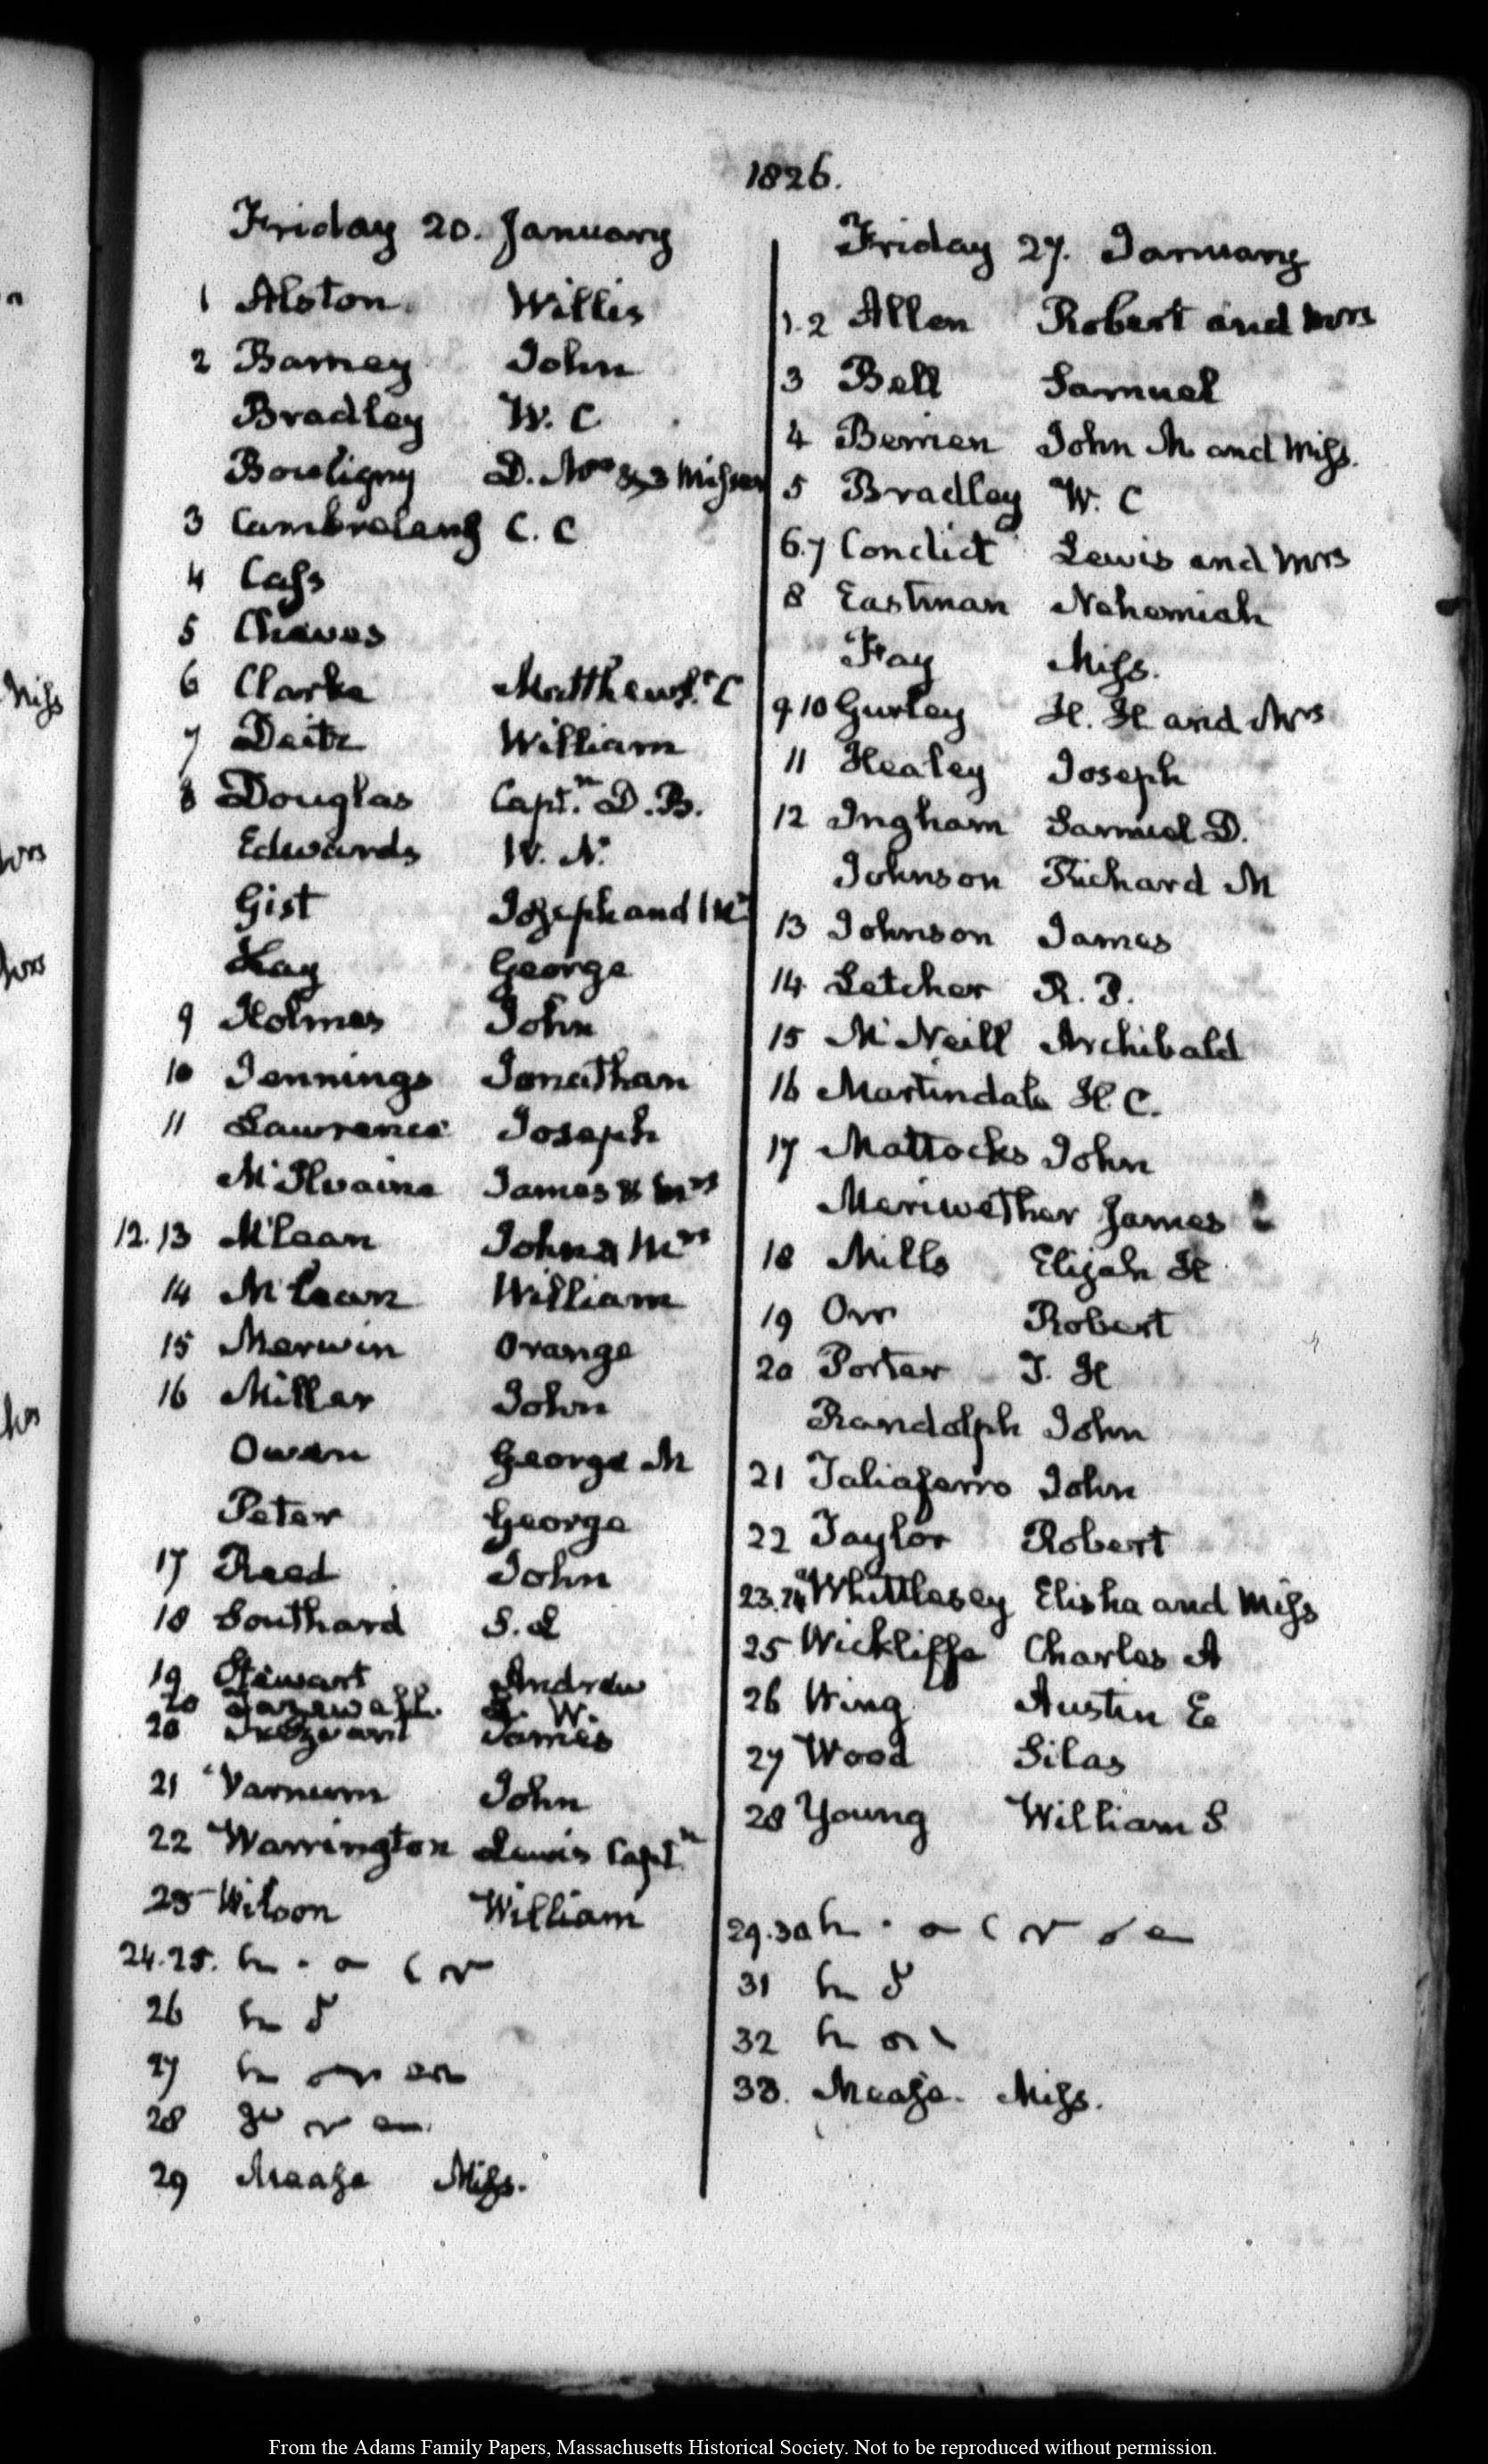 1826.
Friday 20. January
1 Alston Willis
2 Barney John
Bradley W. C
Bouligny D. Mrs & 3 Misses
3 Cambreleng C. C
4 Cass
5 Cheves
6 Clarke Matthew St. C
7 Deitz William
8 Douglas Capt.n D. B.
Edwards W. N.
Gist Joseph and Mrs
Hay George
9 Holmes John
10 Jennings Jonathan
11 Lawrence Joseph
McIlvaine James & Mrs
12. 13 McLean John & Mrs
14 McLean William
15 Merwin Orange
16 Miller John
Owen George M
Peter George
17 Reed John
18 Southard S. L
19 Stewart Andrew
20 Tazewell L. W.
20 Trezvant James
21 Varnum John
22 Warrington Lewis Capt.n
23 Wilson William
24. 25.
26
27
28
29 Mease Miss.
Friday 27. January
1. 2 Allen Robert and Mrs
3 Bell Samuel
4 Berrien John M and Miss.
5 Bradley W. C
6. 7 Condict Lewis and Mrs
8 Eastman Nehemiah
Fay Miss.
9. 10 Gurley H. H and Mrs
11 Healey Joseph
12 Ingham Samuel D.
Johnson Richard M
13 Johnson James
14 Letcher R. P.
15 McNeill Archibald
16 Martindale H. C.
17 Mattocks John
Meriwether James
18 Mills Elijah H
19 Orr Robert
20 Porter T. H
Randolph John
21 Taliaferro John
22 Taylor Robert
23. 24 Whittlesey Elisha and Miss
25 Wickliffe Charles A
26 Wing Austin E
27 Wood Silas
28 Young William S
29. 30
31
32
33. Mease. Miss.
From the Adams Family Papers, Massachusetts Historical Society. Not to be reproduced without permission.